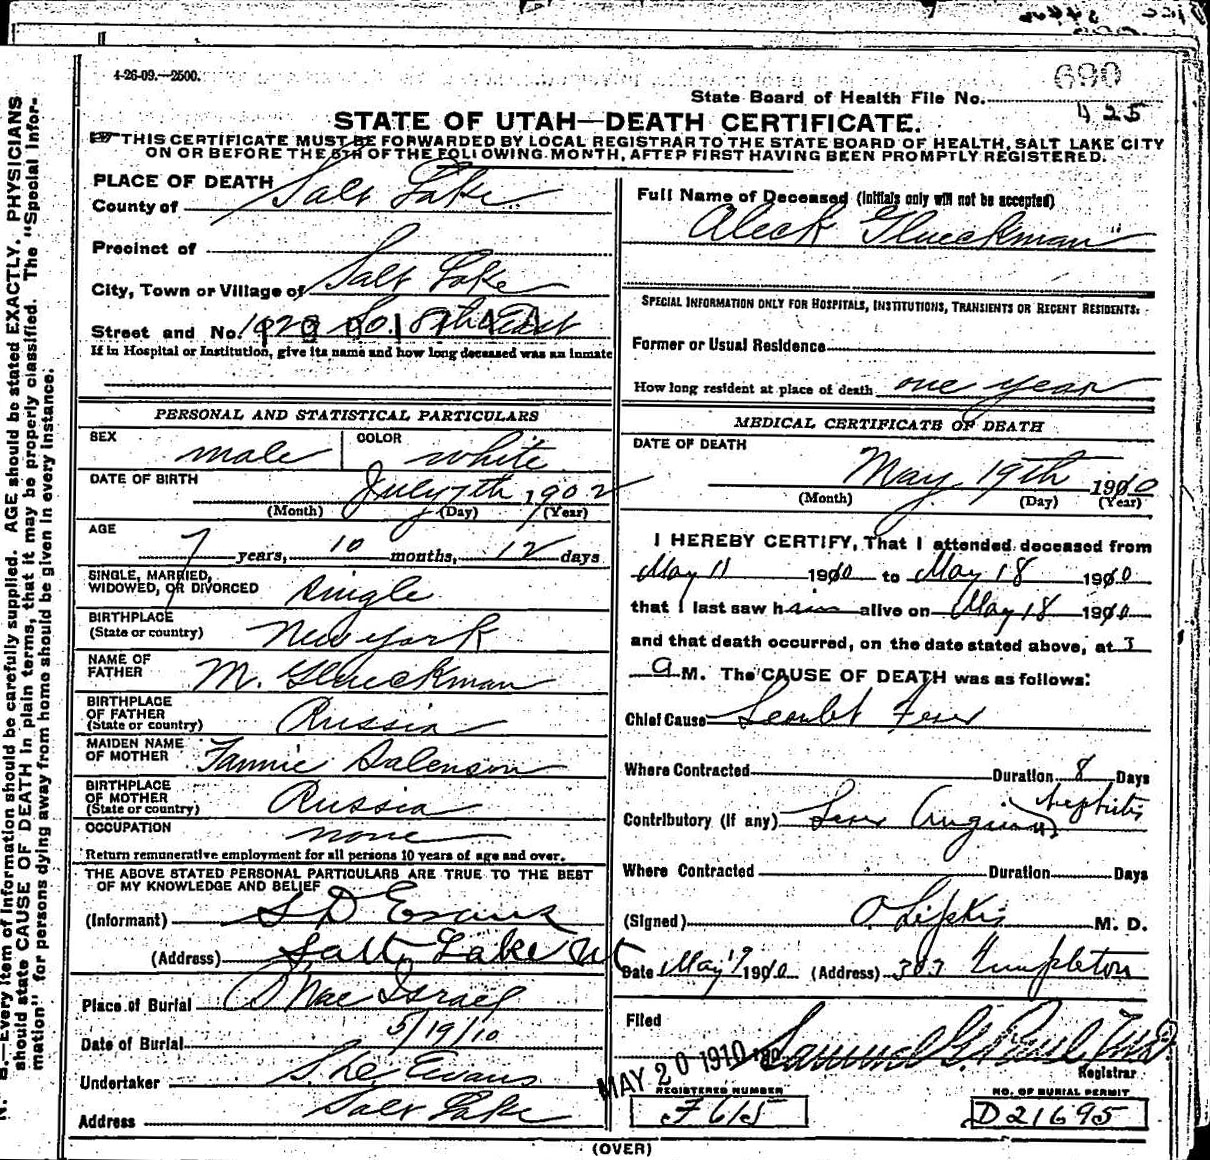 4-26-09.—2500.
690
State Board of Health File No.
425
STATE OF UTAH—DEATH CERTIFICATE.
THIS CERTIFICATE MUST BE FORWARDED BY LOCAL REGISTRAR TO THE STATE BOARD OF HEALTH, SALT LAKE CITY
ON OR BEFORE THE 5TH OF THE FOLLOWING MONTH, AFTER FIRST HAVING BEEN PROMPTLY REGISTERED.
PLACE OF DEATH
County of Salt Lake
Precinct of
City, Town or Village of Salt Lake
Street and No. So. 8th East
If in Hospital or Institution, give its name and how long deceased was an inmate
PERSONAL AND STATISTICAL PARTICULARS
SEX male COLOR white
DATE OF BIRTH July 7th 1902
(Month) (Day) (Year)
AGE 7 years, 10 months, 12 days
SINGLE, MARRIED,
WIDOWED, OR DIVORCED Single
BIRTHPLACE
(State or country) New York
NAME OF
FATHER M. Glueckman
BIRTHPLACE
OF FATHER
(State or country) Russia
MAIDEN NAME
OF MOTHER Fannie Salenson
BIRTHPLACE
OF MOTHER
(State or country) Russia
OCCUPATION none
Return remunerative employment for all persons 10 years of age and over.
THE ABOVE STATED PERSONAL PARTICULARS ARE TRUE TO THE BEST
OF MY KNOWLEDGE AND BELIEF
(Informant) S D Evans
(Address) Salt Lake Ut
Place of Burial B Nae Israel
Date of Burial 5/19/10
Undertaker Evans
Address Salt Lake
Full Name of Deceased (Initials only will not be accepted)
Aleck Glueckman
SPECIAL INFORMATION ONLY FOR HOSPITALS, INSTITUTIONS, TRANSIENTS OR RECENT RESIDENTS:
Former or Usual Residence
How long resident at place of death one year
MEDICAL CERTIFICATE OF DEATH
DATE OF DEATH
May 19th 1910
(Month) (Day) (Year)
I HEREBY CERTIFY, That I attended deceased from
May 11 1910 to May 18 1910
that I last saw him alive on May 18 1910
and that death occurred, on the date stated above, at 3
a M. The CAUSE OF DEATH was as follows:
Chief Cause Scarlet Fever
Where Contracted Duration 8 Days
Contributory (If any) Nephritis
Where Contracted Duration Days
(Signed) O. Lipkis M. D.
Date May 19 1910 (Address) 307 Templeton
Filed
MAY 20 1910 190 Samuel G. Paul M.D.
Registrar
REGISTERED NUMBER
F 615
NO. OF BURIAL PERMIT
D21695
(OVER)
N. B.—Every item of information should be carefully supplied. AGE should be stated EXACTLY. PHYSICIANS
should state CAUSE OF DEATH in plain terms, that it may be properly classified. The "Special Infor-
mation" for persons dying away from home should be given in every instance.